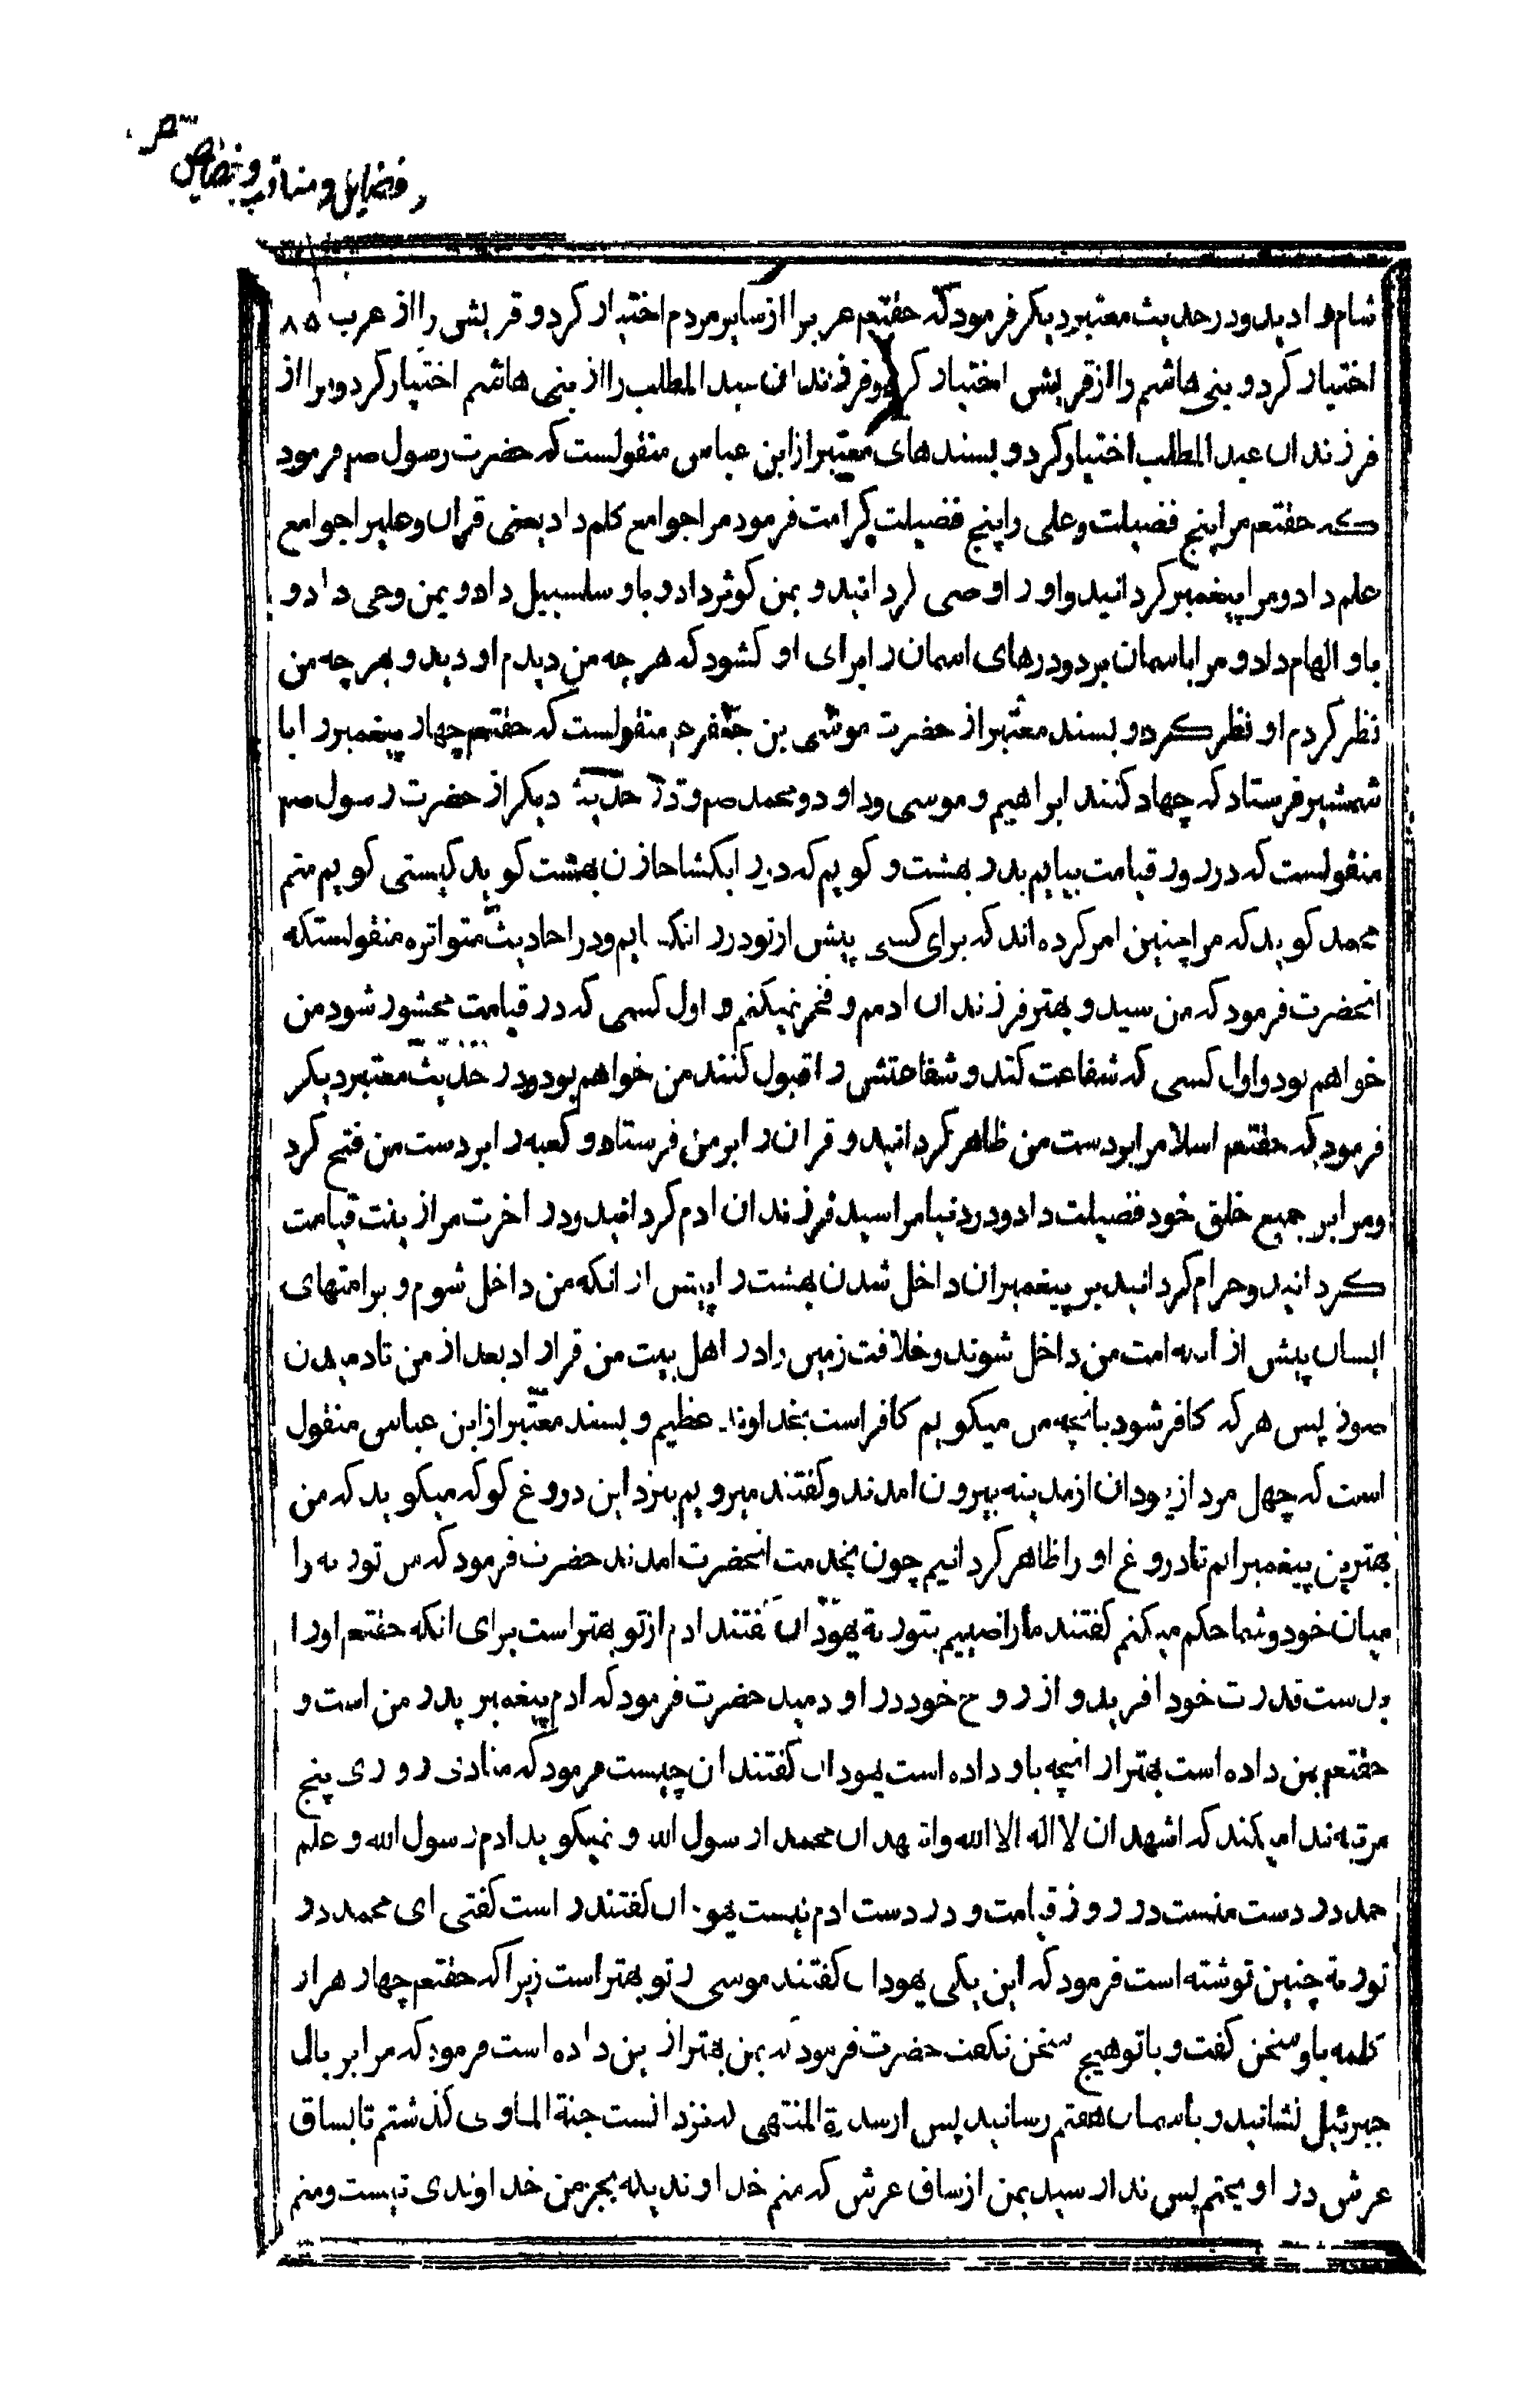 در فضایل و مناقب و خصایص
شام را دید و در حدیث معتبر دیکر فرمود که حقتعم عربرا از سایر مردم اختیار کرد و قریش را از عرب ۸۵
اختیار کرد و بنی هاشم را از قریش اختیار کرد و فرزندان عبد المطلب را از بنی هاشم اختیار کرد و مرا از
فرزندان عبد المطلب اختیار کرد و بسندهای معتبر از ابن عباس منقولست که حضرت رسول صم فرمود
که حقتعم مرا پنج فضیلت و علی را پنج فضیلت کرامت فرمود مرا جوامع کلم داد یعنی قران و علیرا جوامع
علم داد و مرا پیغمبر کردانید و او را وصی کردانید و بمن کوثر داد و باو سلسبیل داد و بمن وحی داد و
باو الهام داد و مرا باسمان برد و درهای اسمان را برای او کشود که هر چه من دیدم او دید و بهر چه من
نظر کردم او نظر کرد و بسند معتبر از حضرت موسی بن جعفر ع منقولست که حقتعم چهار پیغمبر را با
شمشیر فرستاد که جهاد کنند ابراهیم و موسی و داود و محمد صم و در حدیث دیکر از حضرت رسول صم
منقولست که در روز قیامت بیایم بدر بهشت و کویم که در را بکشا خازن بهشت کوید کیستی کویم منم
محمد کوید که مرا چنین امر کرده‌اند که برای کسی پیش از تو در را نکشایم و در احادیث متواتره منقولستکه
انحضرت فرمود که من سید و بهتر فرزندان ادمم و فخر نمیکنم و اول کسی که در قیامت محشور شود من
خواهم بود و اول کسی که شفاعت کند و شفاعتش را قبول کنند من خواهم بود و در حدیث معتبر دیکر
فرمود که حقتعم اسلام را بر دست من ظاهر کردانید و قران را بر من فرستاد و کعبه را بر دست من فتح کرد
و مرا بر جمیع خلق خود فضیلت داد و در دنیا مرا سید فرزندان ادم کردانید و در اخرت مرا زینت قیامت
کردانید و حرام کردانید بر پیغمبران داخل شدن بهشت را پیش از انکه من داخل شوم و بر امتهای
ایشان پیش از انکه امت من داخل شوند و خلافت زمین را در اهل بیت من قرار داد بعد از من تا دمیدن
صور پس هر که کافر شود بانچه من میکویم کافر است بخداوند عظیم و بسند معتبر از ابن عباس منقول
است که چهل مرد از یهودان از مدینه بیرون امدند و کفتند میرویم بنزد این دروغ کو که میکوید که من
بهترین پیغمبرانم تا دروغ او را ظاهر کردانیم چون بخدمت انحضرت امدند حضرت فرمود که من توریه را
میان خود و شما حکم میکنم کفتند ما راضییم بتوریة یهودان کفتند ادم از تو بهتر است برای انکه حقتعم او را
بدست قدرت خود افرید و از روح خود در او دمید حضرت فرمود که ادم پیغمبر پدر من است و
حقتعم بمن داده است بهتر از انچه باو داده است یهودان کفتند ان چیست فرمود که منادی روزی پنج
مرتبه ندا میکند که اشهد ان لا اله الا الله و اشهد ان محمدا رسول الله و نمیکوید ادم رسول الله و علم
حمد در دست منست در روز قیامت و در دست ادم نیست یهودان کفتند راست کفتی ای محمد در
توریة چنین نوشته است فرمود که این یکی یهودان کفتند موسی از تو بهتر است زیرا که حقتعم چهار هزار
کلمه باو سخن کفت و با تو هیچ سخن نکفت حضرت فرمود که بمن بهتر از این داده است فرمود که مرا بر بال
جبرئیل نشانید و باسمان هفتم رسانید پس از سدرة المنتهی که نزد انست جنة الماوی کذشتم تا بساق
عرش در اویختم پس ندا رسید بمن از ساق عرش که منم خداوندیکه بجز من خداوندی نیست و منم